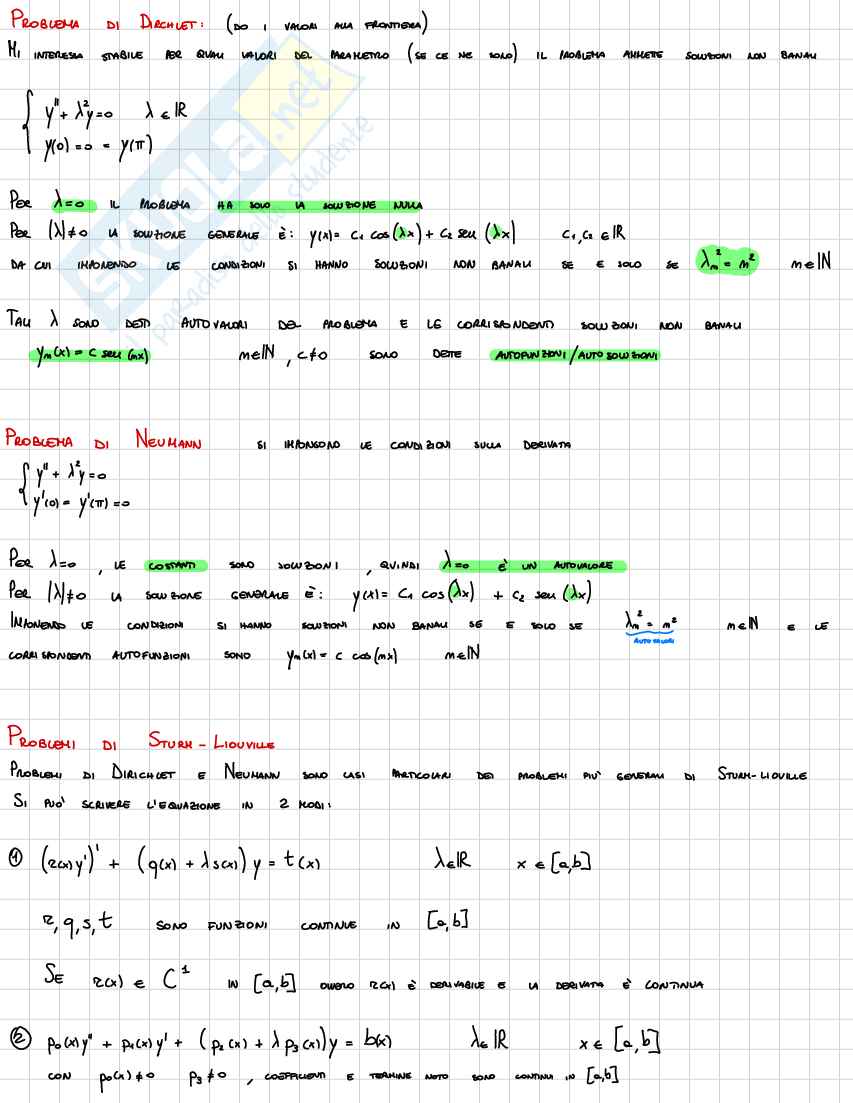 PROBLEMA DI DIRCHLET: (DO I VALORI ALLA FRONTIERA)
MI INTERESSA STABILE PER QUALI VALORI DEL PARAMETRO (SE CE NE SONO) IL PROBLEMA AMMETE SOLUZIONI NON BANALI
{ y'' + λ²y = 0 λ ∈ ℝ
y(0) = 0 = y(π)
PER λ=0 IL PROBLEMA HA SOLO LA SOLUZIONE NULLA
PER |λ|≠0 LA SOLUZIONE GENERALE È: y(x) = C₁ cos(λx) + C₂ sen(λx) C₁,C₂ ∈ ℝ
DA CUI IMPONENDO LE CONDIZIONI SI HANNO SOLUZIONI NON BANALI SE E SOLO SE λₘ² = m² m∈ℕ
TALI λ SONO DETTI AUTOVALORI DEL PROBLEMA E LE CORRISPONDENTI SOLUZIONI NON BANALI
yₘ(x) = C sen(mx) m∈ℕ, C≠0 SONO DETTE AUTOFUNZIONI/AUTOSOLUZIONI
PROBLEMA DI NEUMANN SI IMPONGONO LE CONDIZIONI SULLA DERIVATA
{ y'' + λ²y = 0
y'(0) = y'(π) = 0
PER λ=0, LE COSTANTI SONO SOLUZIONI, QUINDI λ=0 È UN AUTOVALORE
PER |λ|≠0 LA SOLUZIONE GENERALE È: y(x) = C₁ cos(λx) + C₂ sen(λx)
IMPONENDO LE CONDIZIONI SI HANNO SOLUZIONI NON BANALI SE E SOLO SE λₘ² = m² m∈ℕ E LE
AUTOVALORI
CORRISPONDENTI AUTOFUNZIONI SONO yₘ(x) = C cos(mx) m∈ℕ
PROBLEMI DI STURM-LIOUVILLE
PROBLEMI DI DIRICHLET E NEUMANN SONO CASI PARTICOLARI DEI PROBLEMI PIU' GENERALI DI STURM-LIOUVILLE
SI PUO' SCRIVERE L'EQUAZIONE IN 2 MODI:
① (r(x)y')' + (q(x) + λs(x))y = t(x) λ∈ℝ x ∈ [a,b]
r, q, s, t SONO FUNZIONI CONTINUE IN [a,b]
SE r(x) ∈ C¹ IN [a,b] OVVERO r(x) È DERIVABILE E LA DERIVATA È CONTINUA
② p₀(x)y'' + p₁(x)y' + (p₂(x) + λp₃(x))y = b(x) λ∈ℝ x ∈ [a,b]
CON p₀(x)≠0 p₃≠0, COEFFICIENTI E TERMINE NOTO SONO CONTINUI IN [a,b]
SKUOLA.net
il paradiso dello studente